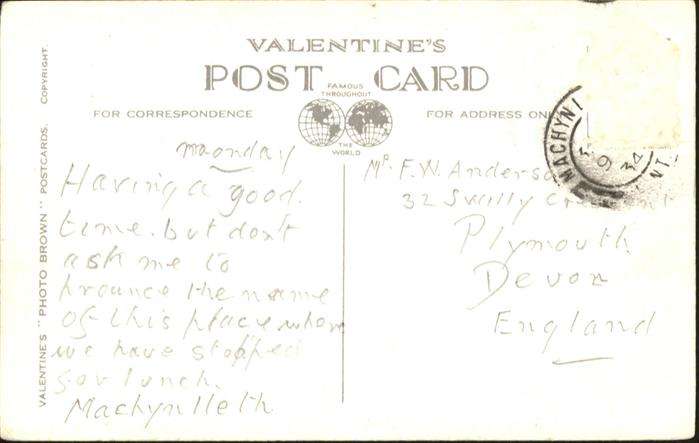 VALENTINE'S
POST CARD
FAMOUS
THROUGHOUT
THE
WORLD
FOR CORRESPONDENCE
FOR ADDRESS ON
COPYRIGHT.
VALENTINE'S "PHOTO BROWN" POSTCARDS.
monday
Having a good
time. but don't
ask me to
prounce the name
of this place where
we have stopped
for lunch.
Machynlleth
F. W. Anderso
32 Swilly
Plymouth
Devon
England
MACHYN
NT.